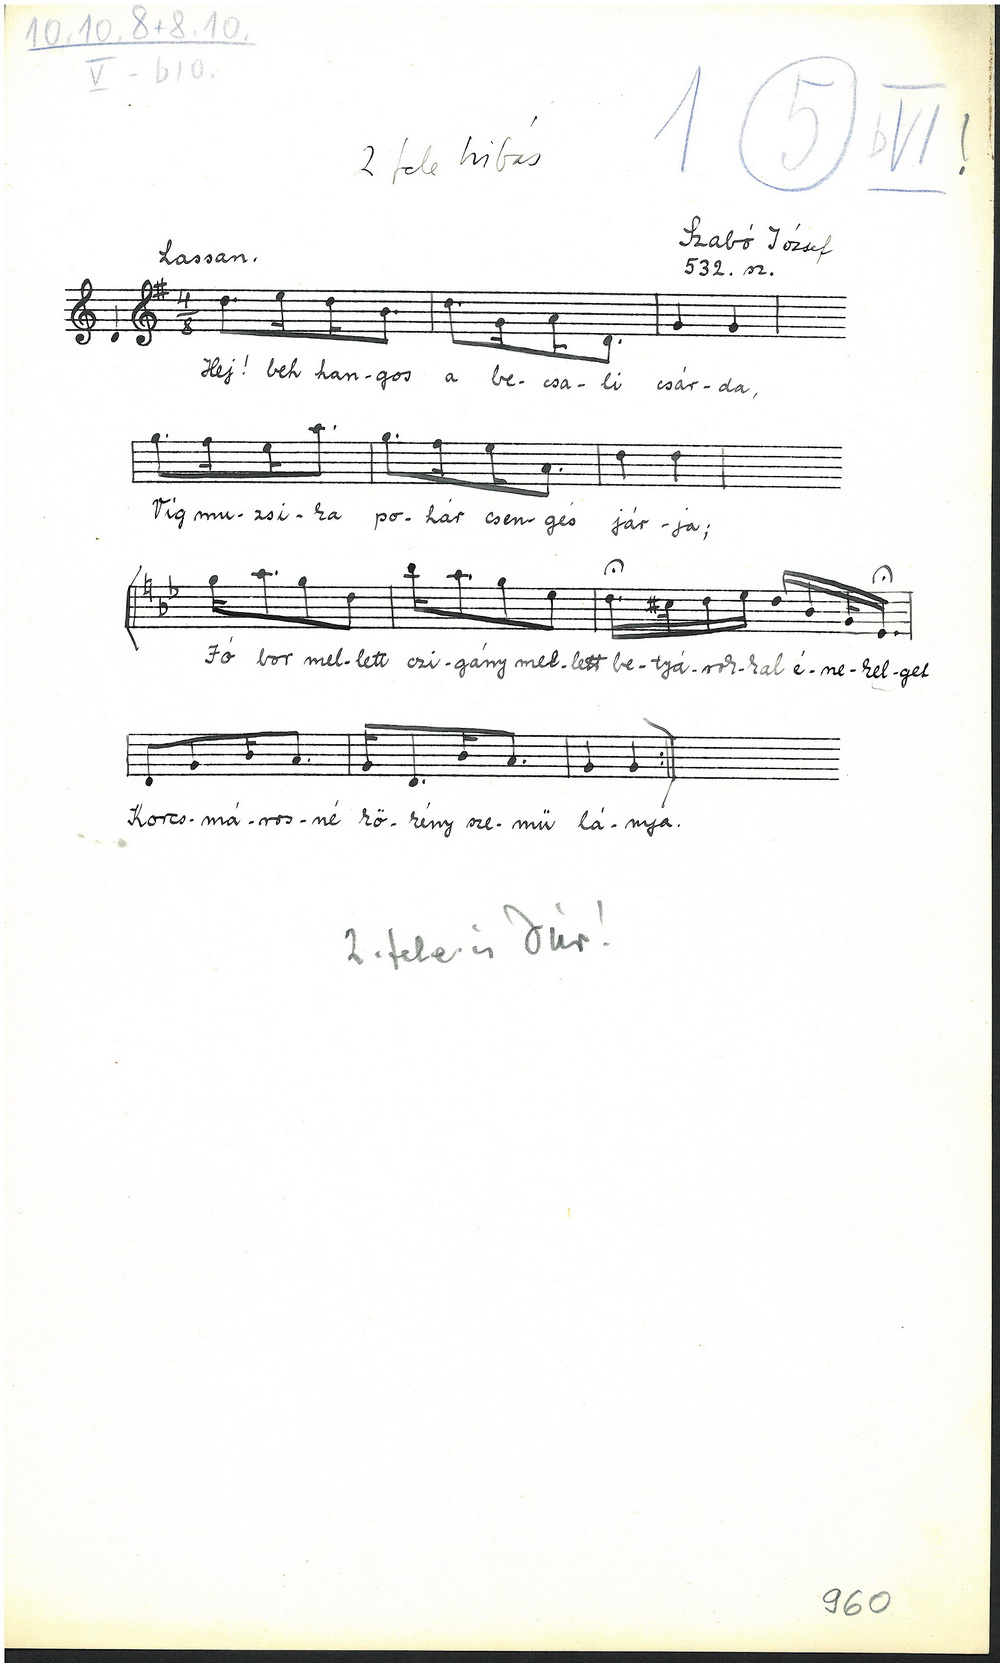 10.10.8+8.10.
V - b10.
1 5 bVI !
2 fele hibás
Szabó József
532. sz.
Lassan.
4/8
Hej! beh han-gos a be-csa-li csár-da,
Víg mu-zsi-ka po-hár csen-gés jár-ja;
Jó bor mel-lett czi-gány mel-lett be-tyá-rok-kal é-ne-kel-get
Korcs-má-ros-né kö-kény sze-mü lá-nya.
2. fele is Dúr!
960